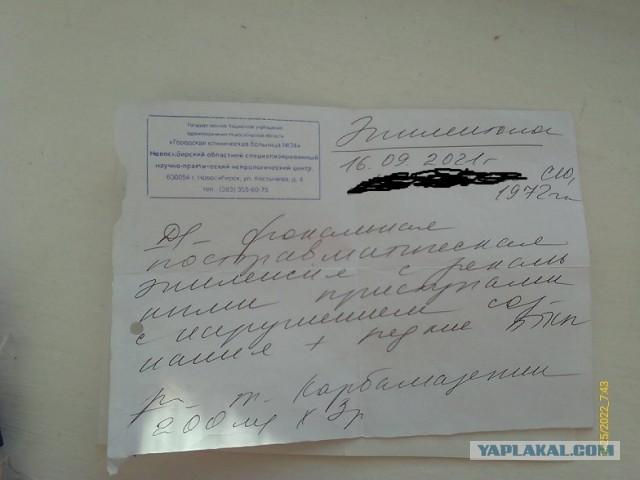 Государственное бюджетное учреждение
здравоохранения Новосибирской области
«Городская клиническая больница №34»
Новосибирский областной специализированный
научно-практический неврологический центр.
630054 г. Новосибирск, ул. Костычева, д. 4
тел. (383) 355-60-75
Эпилептолог
16.09 2021г
1972г
DS- фокальная
посттравматическая
эпилепсия с фокаль
ными приступами
с нарушением соз-
нания + редкие ВТКП
р- т. Карбамазепин
200мг х 3р
/2022_7:43
YAPLAKAL.COM